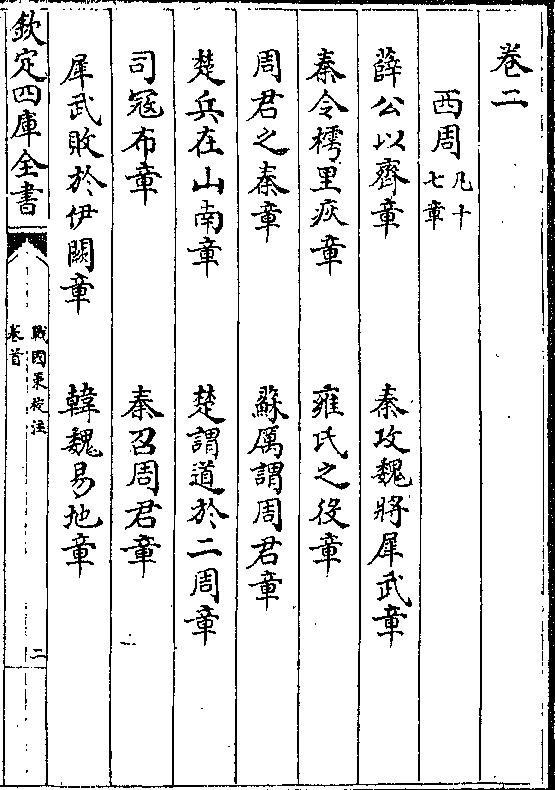 卷二
西周凡十七章
薛公以齊章 秦攻魏將犀武章
秦令樗里疾章 雍氏之役章
周君之秦章 蘇厲謂周君章
楚兵在山南章 楚謂道於二周章
司寇布章 秦召周君章
犀武敗於伊闕章 韓魏易地章
欽定四庫全書
戰國策校注
卷首
二